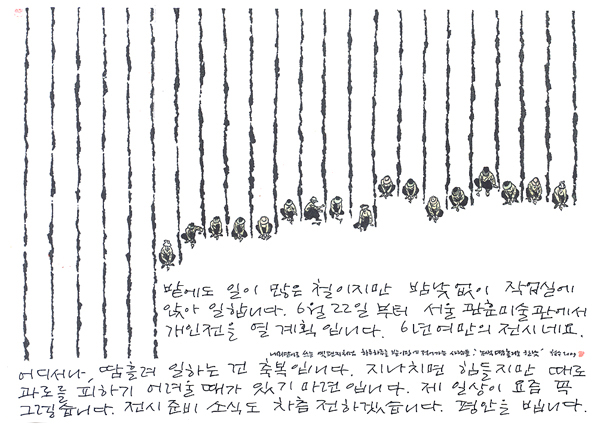 밭에도 일이 많은 철이지만 밤낮없이 작업실에
앉아 일합니다. 6월 22일부터 서울 관훈미술관에서
개인전을 열 계획입니다. 6년여만의 전시네요.
어디서나, 땀흘려 일하는 건 축복입니다. 지나치면 힘들지만 때로
과로를 피하기 어려울 때가 있기 마련입니다. 제 일상이 요즘 꼭
그렇습니다. 전시준비 소식도 차츰 전하겠습니다. 평안을 빕니다.